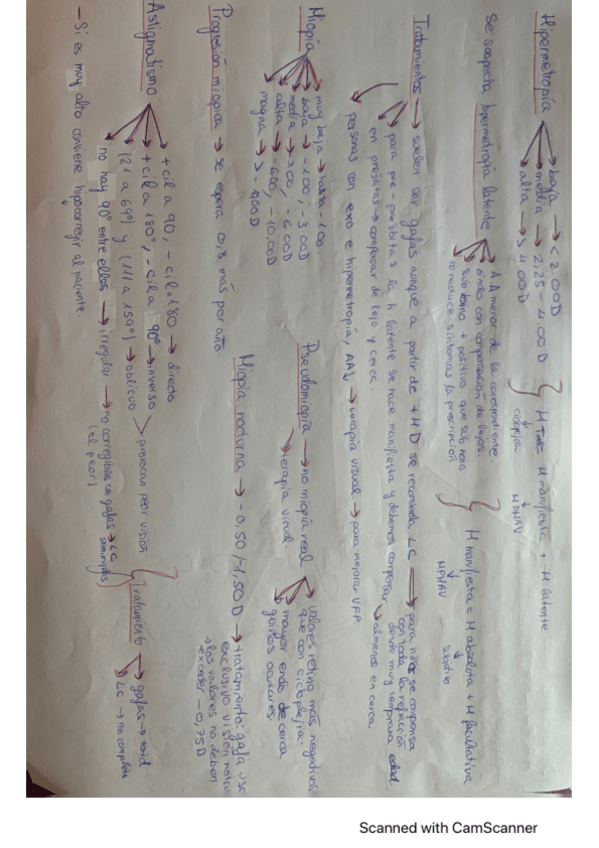 Hipermetropía → baja → < 2.00D
→ media → 2,25 - 4.00D
→ alta → > 4.00D
H Total = H manifiesta + H latente
↓ cicloplejia ↓ MPMAV
H manifiesta = H absoluta + H facultativa
↓ MPMAV ↓ subjetivo
Se sospecha hipermetropía latente → AA menor de la correspondiente.
→ Endo con compensación de lejos.
→ subj. + positivo que
→ no reduce síntomas la prescripción
Tratamientos → suelen ser gafas aunque a partir de +4D se recomienda LC → para niños se compensa
con toda la refracción
desde muy temprana edad.
→ para pre-présbitas la H latente se hace manifiesta y debemos compensar → al menos en cerca
en présbitas → compensar de lejos y cerca.
→ personas con exo e hipermetropía, AA↓ → terapia visual → para mejorar VFP
Miopía → muy baja → hasta -1.00
→ baja → -1.00, -3.00D
→ media → -3.00, -6.00D
→ alta → -6.00, -10.00D
→ magna → > -10.00D
Pseudomiopía → no miopía real → valores retino más negativos
que con cicloplejia.
→ mayor endo de cerca
→ guiños oculares.
→ terapia visual.
Progresión miópica → se espera 0,5 más por año.
Miopía nocturna → -0,50 / -1,50D → tratamiento: gafa uso
exclusivo visión noctu
→ los valores no deben
exceder -0,75D
Astigmatismo → + cil a 90, - cil a 180 → directo
→ + cil a 180°, - cil a 90° → inverso
→ (21 a 69°) y (111 a 159°) → oblicuo
provocan peor visión
→ no hay 90° entre ellos → irregular → no corregible con gafas → LC
(el peor)
Tratamiento → gafas → total
→ LC → no completa
- Si es muy alto conviene hipocorregir al paciente.
Scanned with CamScanner